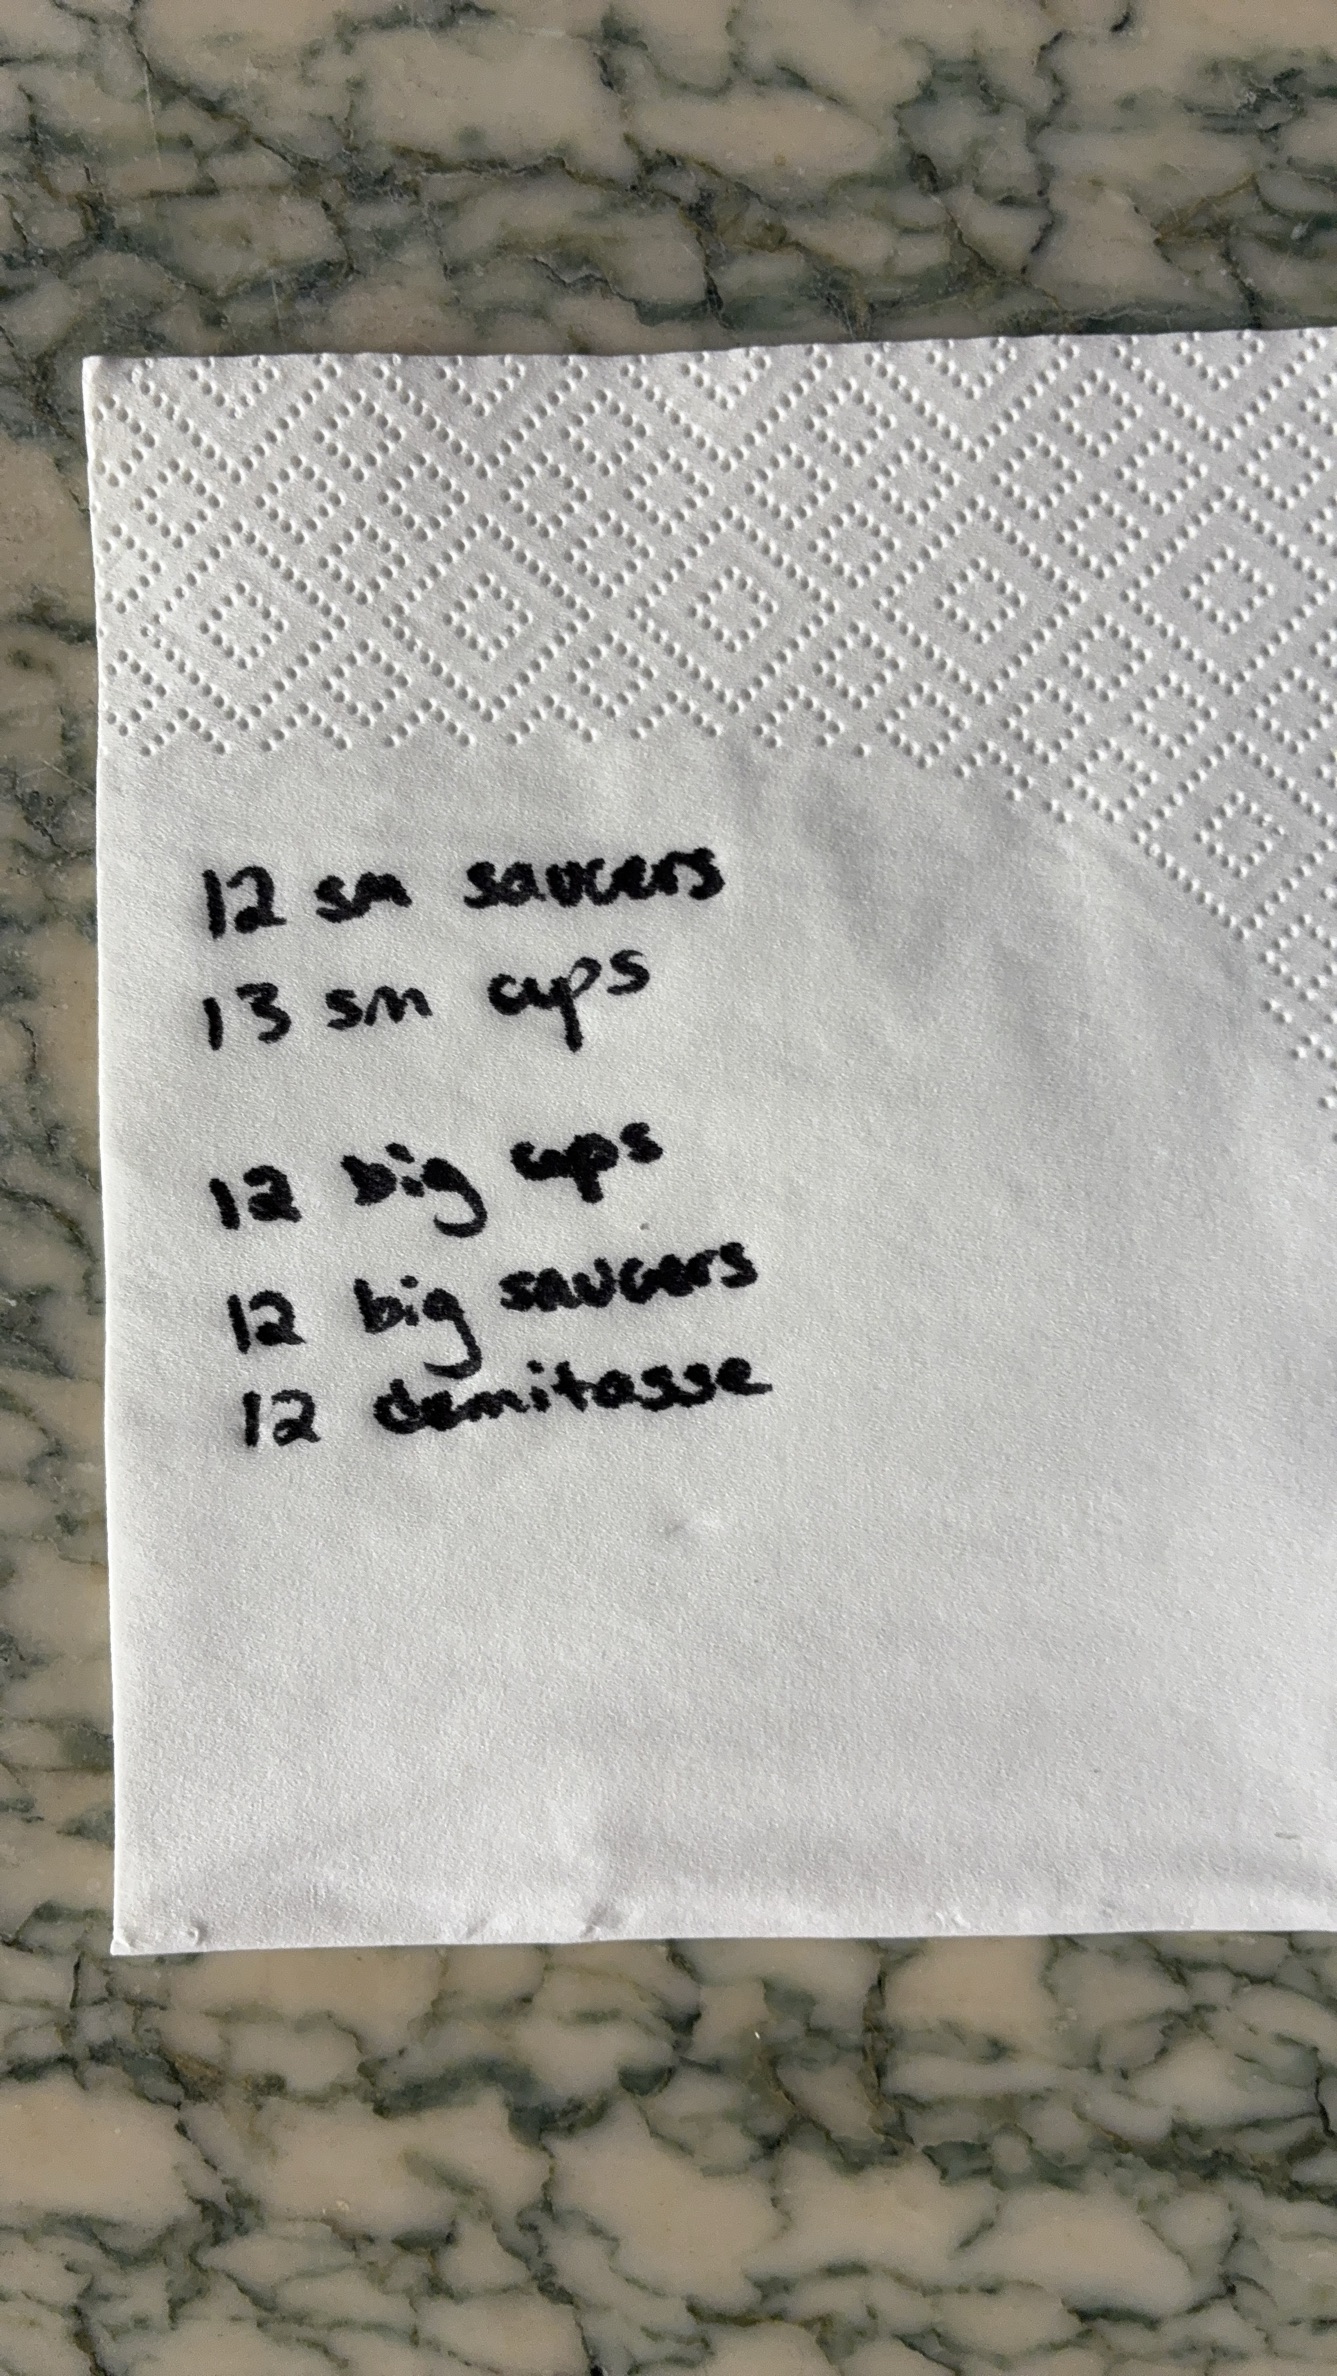 12 sm saucers
13 sm cups
12 big cups
12 big saucers
12 demitasse